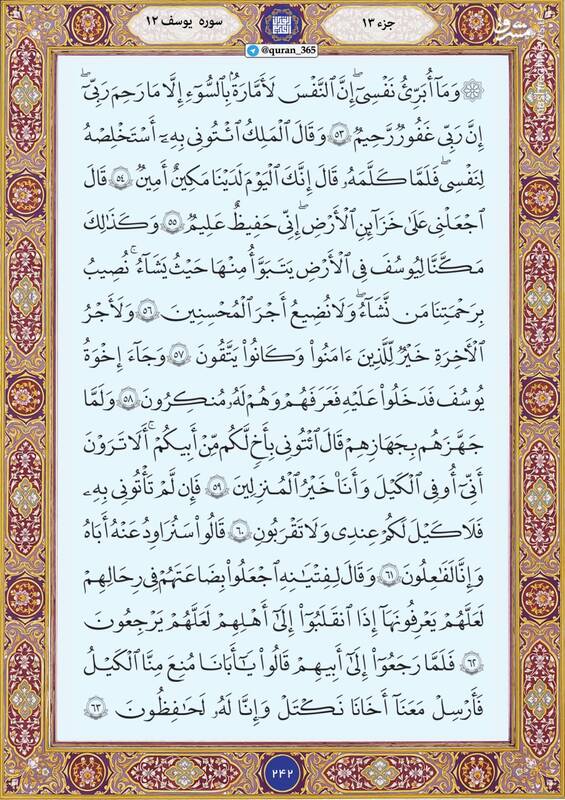 سوره یوسف ۱۲
جزء ۱۳
@quran_365
مشرق
۞ وَمَآ أُبَرِّئُ نَفْسِىٓۚ إِنَّ ٱلنَّفْسَ لَأَمَّارَةٌۢ بِٱلسُّوٓءِ إِلَّا مَا رَحِمَ رَبِّىٓۚ
إِنَّ رَبِّى غَفُورٌ رَّحِيمٌ ﴿٥٣﴾ وَقَالَ ٱلْمَلِكُ ٱئْتُونِى بِهِۦٓ أَسْتَخْلِصْهُ
لِنَفْسِىۖ فَلَمَّا كَلَّمَهُۥ قَالَ إِنَّكَ ٱلْيَوْمَ لَدَيْنَا مَكِينٌ أَمِينٌ ﴿٥٤﴾ قَالَ
ٱجْعَلْنِى عَلَىٰ خَزَآئِنِ ٱلْأَرْضِۖ إِنِّى حَفِيظٌ عَلِيمٌ ﴿٥٥﴾ وَكَذَٰلِكَ
مَكَّنَّا لِيُوسُفَ فِى ٱلْأَرْضِ يَتَبَوَّأُ مِنْهَا حَيْثُ يَشَآءُۚ نُصِيبُ
بِرَحْمَتِنَا مَن نَّشَآءُۖ وَلَا نُضِيعُ أَجْرَ ٱلْمُحْسِنِينَ ﴿٥٦﴾ وَلَأَجْرُ
ٱلْأَخِرَةِ خَيْرٌ لِّلَّذِينَ ءَامَنُوا۟ وَكَانُوا۟ يَتَّقُونَ ﴿٥٧﴾ وَجَآءَ إِخْوَةُ
يُوسُفَ فَدَخَلُوا۟ عَلَيْهِ فَعَرَفَهُمْ وَهُمْ لَهُۥ مُنكِرُونَ ﴿٥٨﴾ وَلَمَّا
جَهَّزَهُم بِجَهَازِهِمْ قَالَ ٱئْتُونِى بِأَخٍ لَّكُم مِّنْ أَبِيكُمْۚ أَلَا تَرَوْنَ
أَنِّىٓ أُوفِى ٱلْكَيْلَ وَأَنَا۠ خَيْرُ ٱلْمُنزِلِينَ ﴿٥٩﴾ فَإِن لَّمْ تَأْتُونِى بِهِۦ
فَلَا كَيْلَ لَكُمْ عِندِى وَلَا تَقْرَبُونِ ﴿٦٠﴾ قَالُوا۟ سَنُرَٰوِدُ عَنْهُ أَبَاهُ
وَإِنَّا لَفَٰعِلُونَ ﴿٦١﴾ وَقَالَ لِفِتْيَٰنِهِ ٱجْعَلُوا۟ بِضَٰعَتَهُمْ فِى رِحَالِهِمْ
لَعَلَّهُمْ يَعْرِفُونَهَآ إِذَا ٱنقَلَبُوٓا۟ إِلَىٰٓ أَهْلِهِمْ لَعَلَّهُمْ يَرْجِعُونَ
﴿٦٢﴾ فَلَمَّا رَجَعُوٓا۟ إِلَىٰٓ أَبِيهِمْ قَالُوا۟ يَٰٓأَبَانَا مُنِعَ مِنَّا ٱلْكَيْلُ
فَأَرْسِلْ مَعَنَآ أَخَانَا نَكْتَلْ وَإِنَّا لَهُۥ لَحَٰفِظُونَ ﴿٦٣﴾
۲۴۲